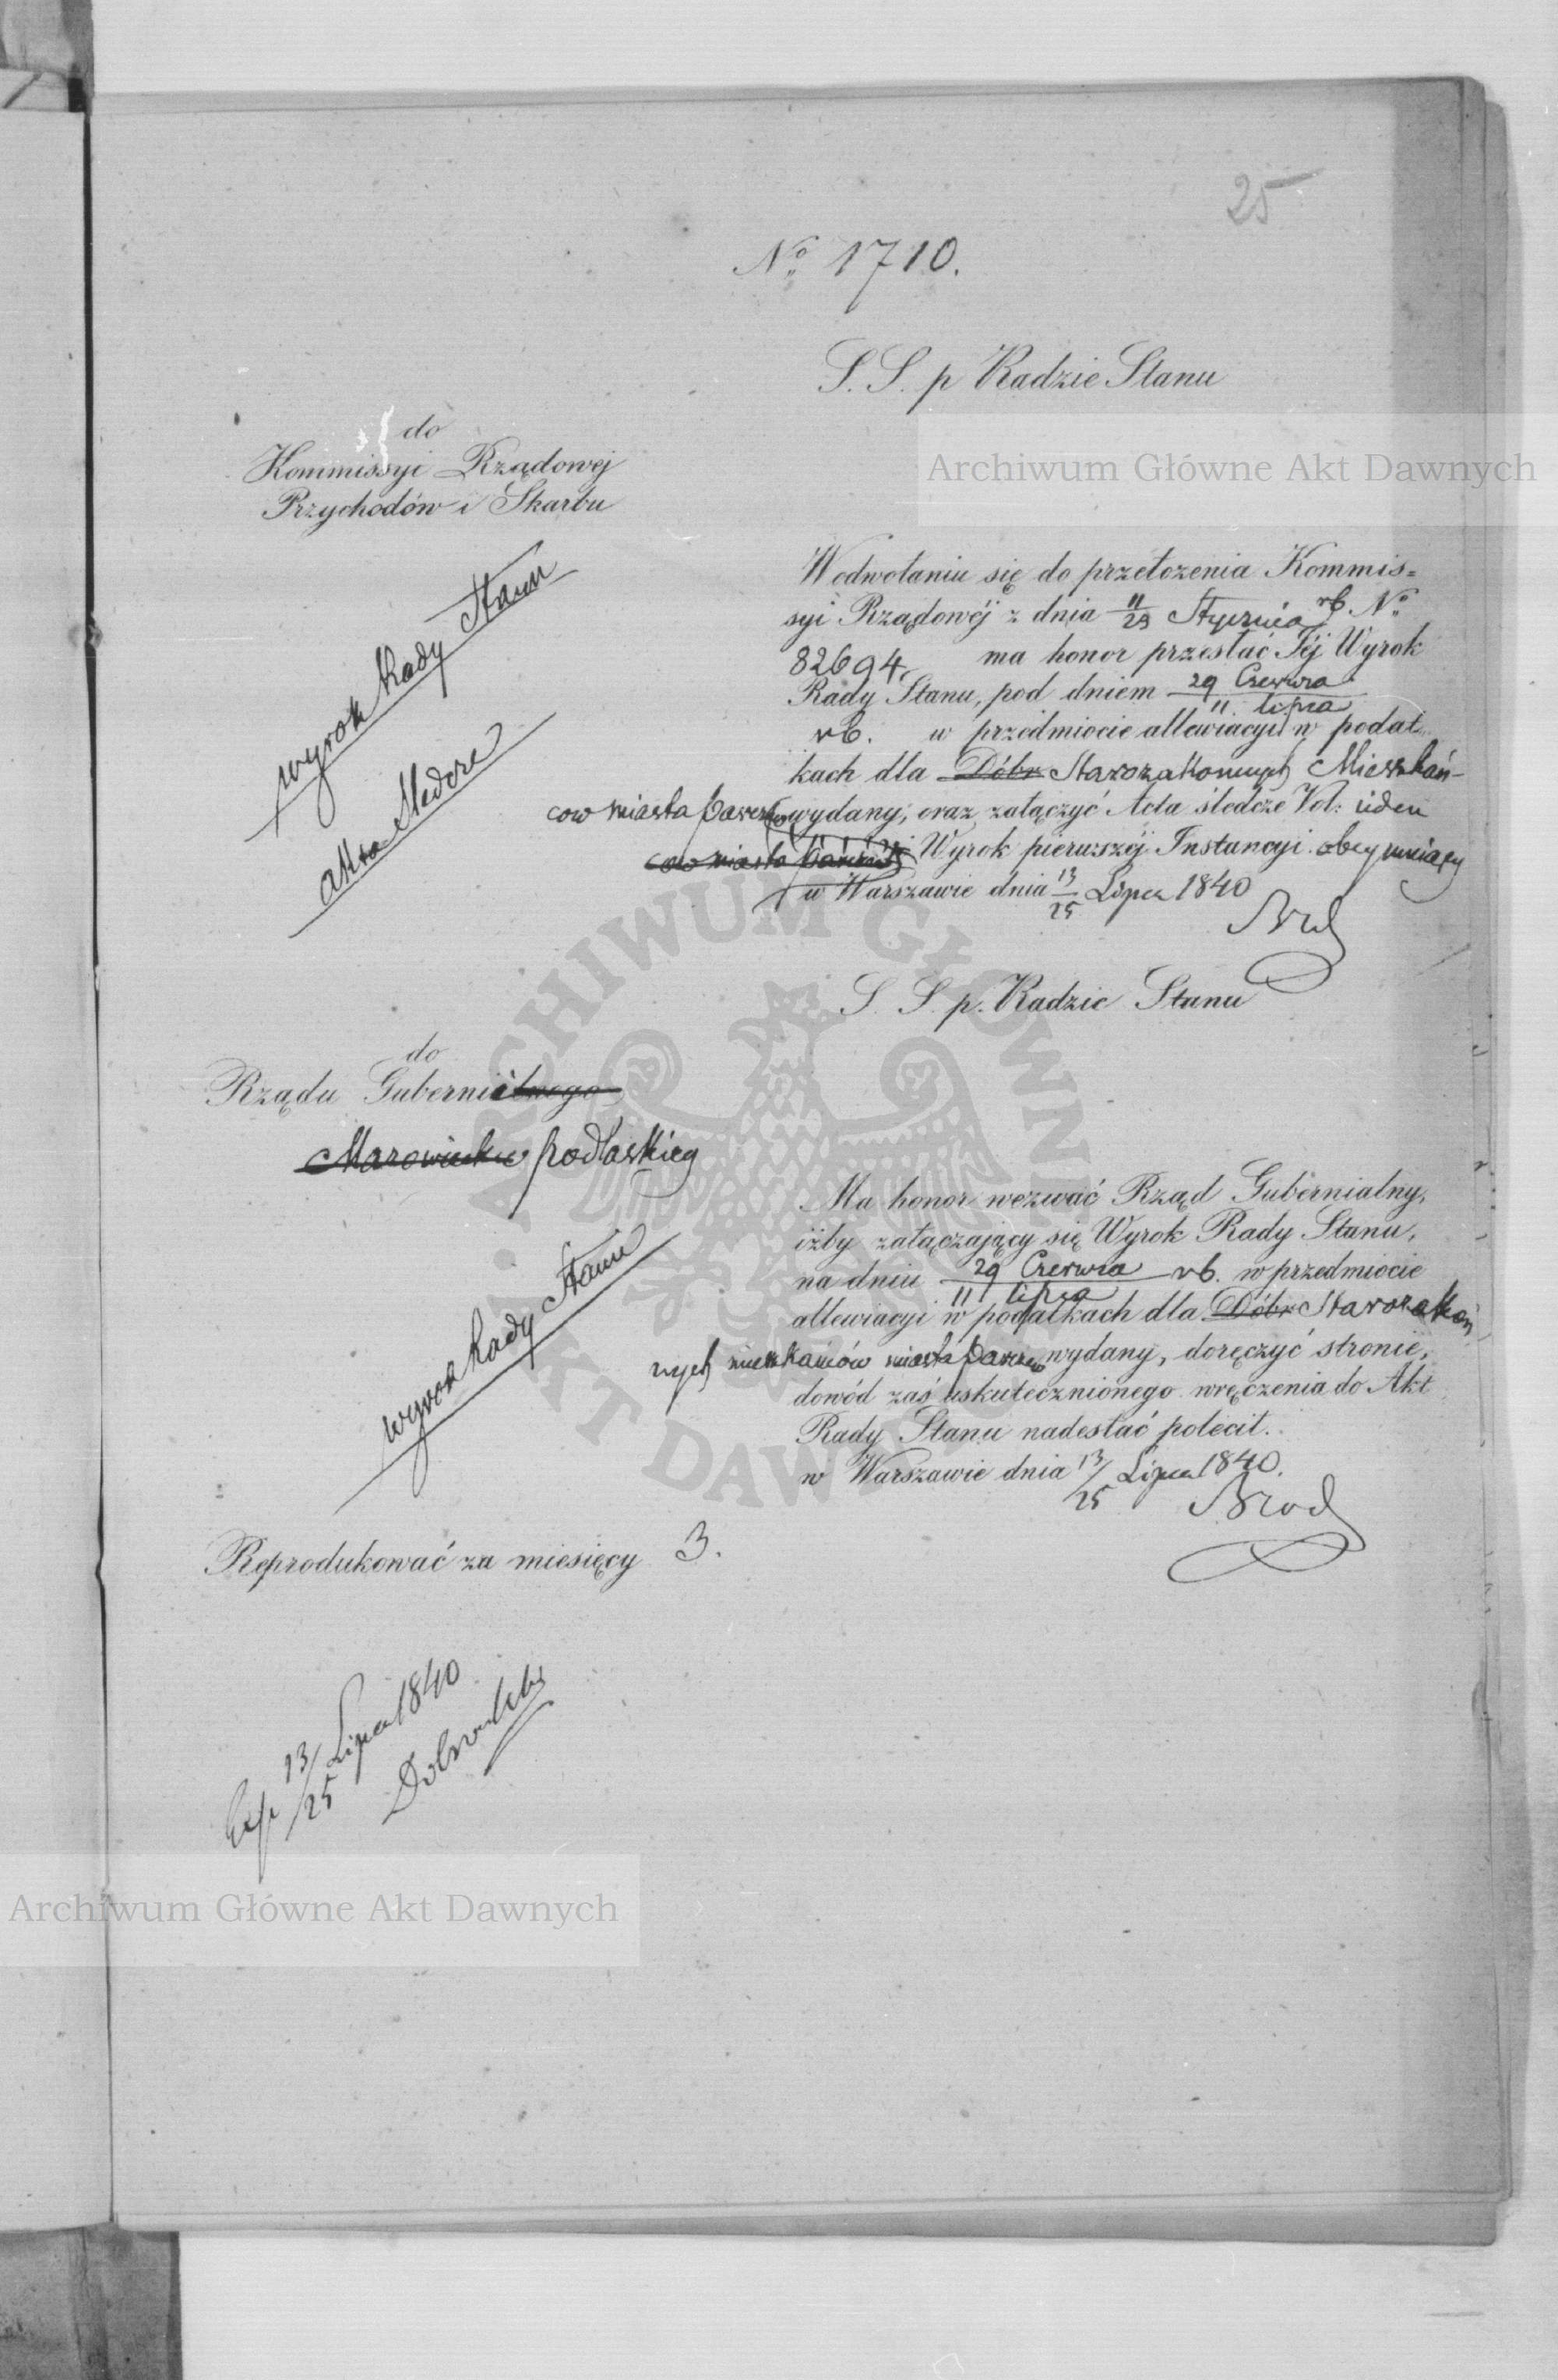 25
No 1710.
S. S. p Radzie Stanu
do
Kommissyi Rządowej
Przychodów i Skarbu
Archiwum Główne Akt Dawnych
wyrok Rady Stanu
akta Sledcze
W odwołaniu się do przełożenia Kommis=
syi Rządowéj z dnia 11/23 Stycznia rb. No
82694. ma honor przesłać Jéj Wyrok
Rady Stanu, pod dniem 29 Czerwca
11 lipca
rb. w przedmiocie allewiacyi w podat
kach dla Dóbr Starozakonnych Mieszkań-
cow miasta Parczewa wydany, oraz załączyć Acta śledcze Vol: jeden
cow miasta Wyrok pierwszéj Instancyi obeymujący
w Warszawie dnia 13/25 Lipca 1840
Brod
S. S. p. Radzie Stanu
do
Rządu Gubernialnego
Mazowieckie Podlaskieg
Ma honor wezwać Rząd Gubernialny,
iżby załączający się Wyrok Rady Stanu,
na dniu 29 Czerwca rb. w przedmiocie
11 lipca
allewiacyi w podatkach dla Dóbr Starozakon
nych mieszkańców miasta Parczewa wydany, doręczyć stronie,
dowód zaś uskutecznionego wręczenia do Akt
Rady Stanu nadesłać polecił.
w Warszawie dnia 13/25 Lipca 1840.
Brod
wyrok Rady Stanu
Reprodukować za miesięcy 3.
Exp 13/25 Lipca 1840
Archiwum Główne Akt Dawnych
ARCHIWUM GŁÓWNE AKT DAWNYCH